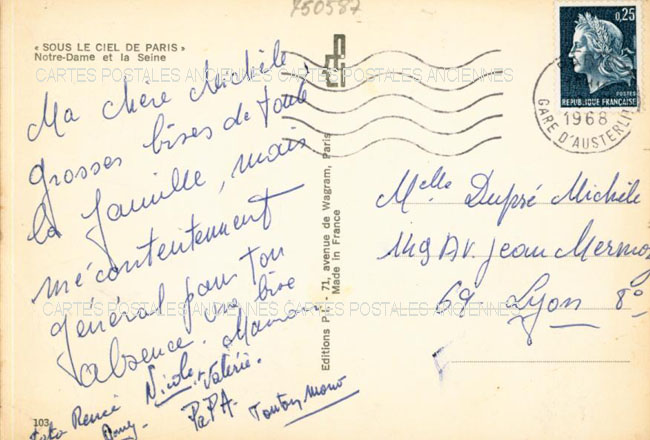 750587
« SOUS LE CIEL DE PARIS »
Notre-Dame et la Seine
CARTES POSTALES ANCIENNES CARTES POSTALES ANCIENNES
Ma chère Michèle,
grosses bises de toute
la famille, mais
mécontentement
général pour ton
absence. une bise
Maman
Nicole. Valérie.
Renée
PaPA.
Tonton
103
Editions P.I. - 71, avenue de Wagram, Paris
Made in France
0,25
POSTES
REPUBLIQUE FRANÇAISE
1968
GARE D'AUSTERLI
Melle Dupré Michèle
149 AV. Jean Mermoz
69 - Lyon 8°
CARTES POSTALES ANCIENNES CARTES POSTALES ANCIENNES